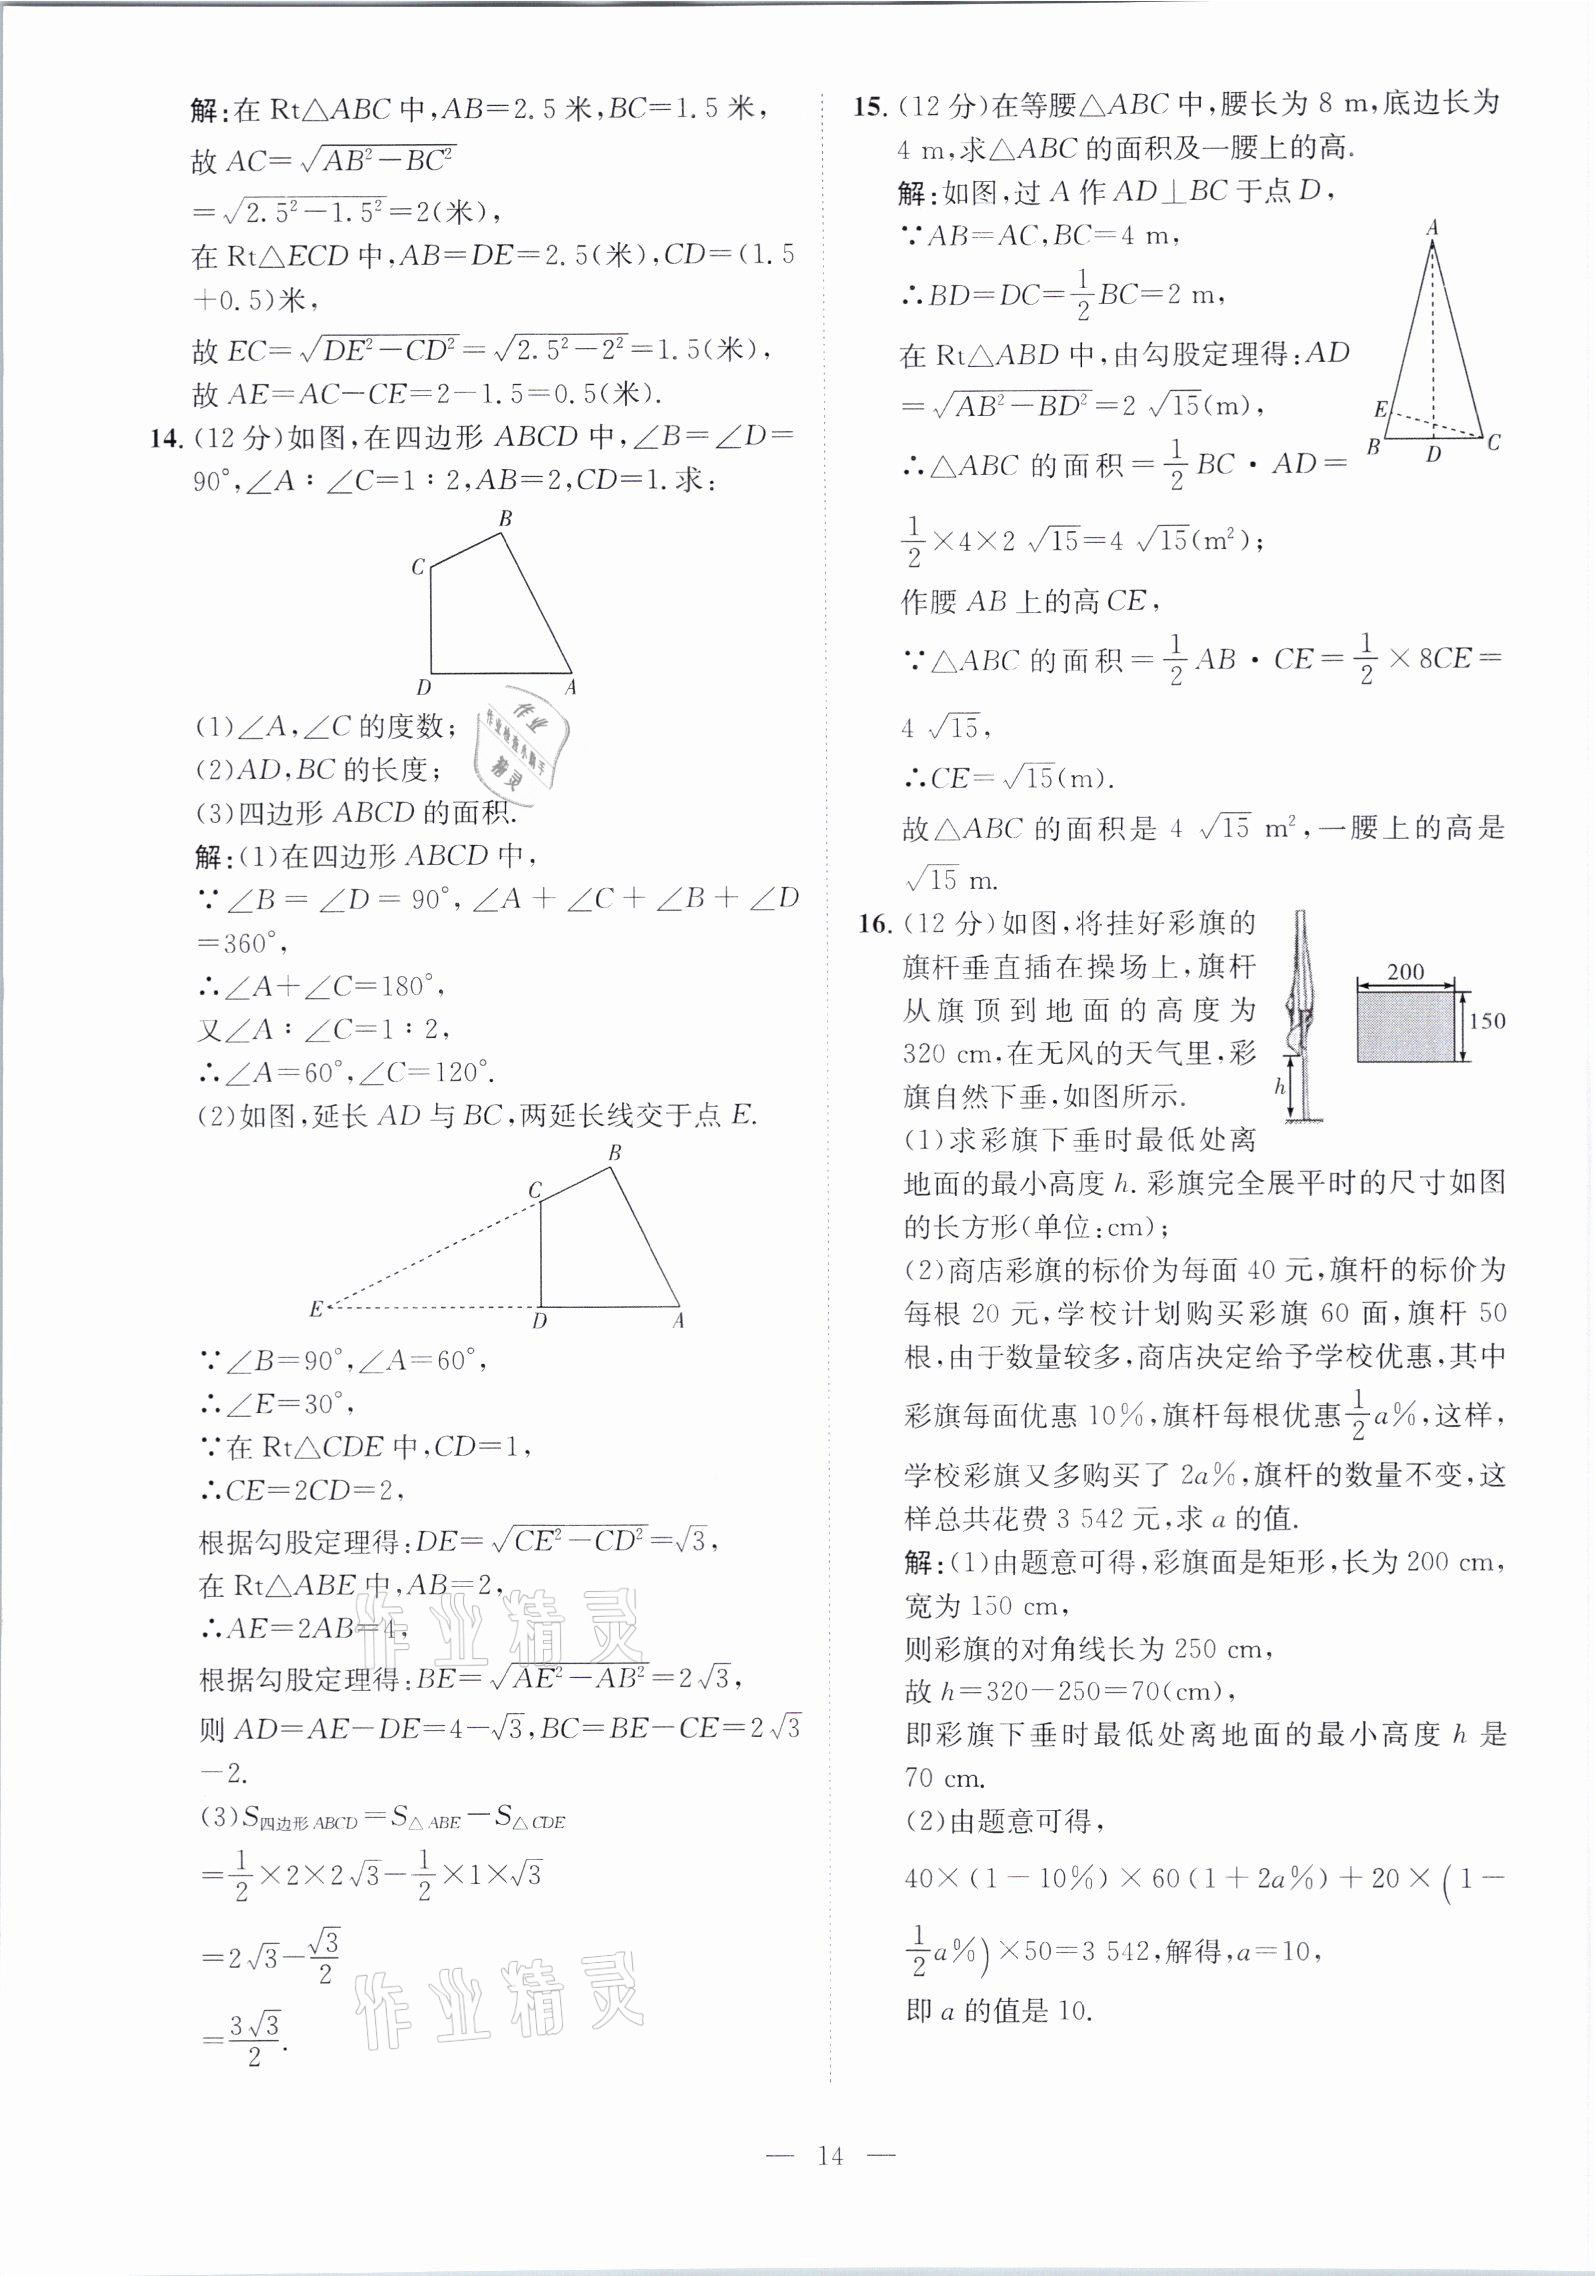 解:在 Rt△ABC 中,AB=2.5 米,BC=1.5 米,
故 AC=√(AB²-BC²)
=√(2.5²-1.5²)=2(米),
在 Rt△ECD 中,AB=DE=2.5(米),CD=(1.5
+0.5)米,
故 EC=√(DE²-CD²)=√(2.5²-2²)=1.5(米),
故 AE=AC-CE=2-1.5=0.5(米).
14.(12 分)如图,在四边形 ABCD 中,∠B=∠D=
90°,∠A∶∠C=1∶2,AB=2,CD=1.求:
B
C
D
A
(1)∠A,∠C 的度数;
(2)AD,BC 的长度;
(3)四边形 ABCD 的面积.
解:(1)在四边形 ABCD 中,
∵∠B=∠D=90°,∠A+∠C+∠B+∠D
=360°,
∴∠A+∠C=180°,
又∠A∶∠C=1∶2,
∴∠A=60°,∠C=120°.
(2)如图,延长 AD 与 BC,两延长线交于点 E.
B
C
E
D
A
∵∠B=90°,∠A=60°,
∴∠E=30°,
∵在 Rt△CDE 中,CD=1,
∴CE=2CD=2,
根据勾股定理得:DE=√(CE²-CD²)=√3,
在 Rt△ABE 中,AB=2,
∴AE=2AB=4,
根据勾股定理得:BE=√(AE²-AB²)=2√3,
则 AD=AE-DE=4-√3,BC=BE-CE=2√3
-2.
(3)S四边形ABCD=S△ABE-S△CDE
=1/2×2×2√3-1/2×1×√3
=2√3-√3/2
=3√3/2.
15.(12 分)在等腰△ABC 中,腰长为 8 m,底边长为
4 m,求△ABC 的面积及一腰上的高.
解:如图,过 A 作 AD⊥BC 于点 D,
∵AB=AC,BC=4 m,
∴BD=DC=1/2BC=2 m,
在 Rt△ABD 中,由勾股定理得:AD
=√(AB²-BD²)=2√15(m),
∴△ABC 的面积=1/2BC·AD=
1/2×4×2√15=4√15(m²);
A
E
B
D
C
作腰 AB 上的高 CE,
∵△ABC 的面积=1/2AB·CE=1/2×8CE=
4√15,
∴CE=√15(m).
故△ABC 的面积是 4√15 m²,一腰上的高是
√15 m.
16.(12 分)如图,将挂好彩旗的
旗杆垂直插在操场上,旗杆
从旗顶到地面的高度为
320 cm,在无风的天气里,彩
旗自然下垂,如图所示.
200
150
h
(1)求彩旗下垂时最低处离
地面的最小高度 h.彩旗完全展平时的尺寸如图
的长方形(单位:cm);
(2)商店彩旗的标价为每面 40 元,旗杆的标价为
每根 20 元,学校计划购买彩旗 60 面,旗杆 50
根,由于数量较多,商店决定给予学校优惠,其中
彩旗每面优惠 10%,旗杆每根优惠1/2a%,这样,
学校彩旗又多购买了 2a%,旗杆的数量不变,这
样总共花费 3 542 元,求 a 的值.
解:(1)由题意可得,彩旗面是矩形,长为 200 cm,
宽为 150 cm,
则彩旗的对角线长为 250 cm,
故 h=320-250=70(cm),
即彩旗下垂时最低处离地面的最小高度 h 是
70 cm.
(2)由题意可得,
40×(1-10%)×60(1+2a%)+20×(1-
1/2a%)×50=3 542,解得,a=10,
即 a 的值是 10.
作业
作业检查小助手
精灵
作业精灵
作业精灵
— 14 —